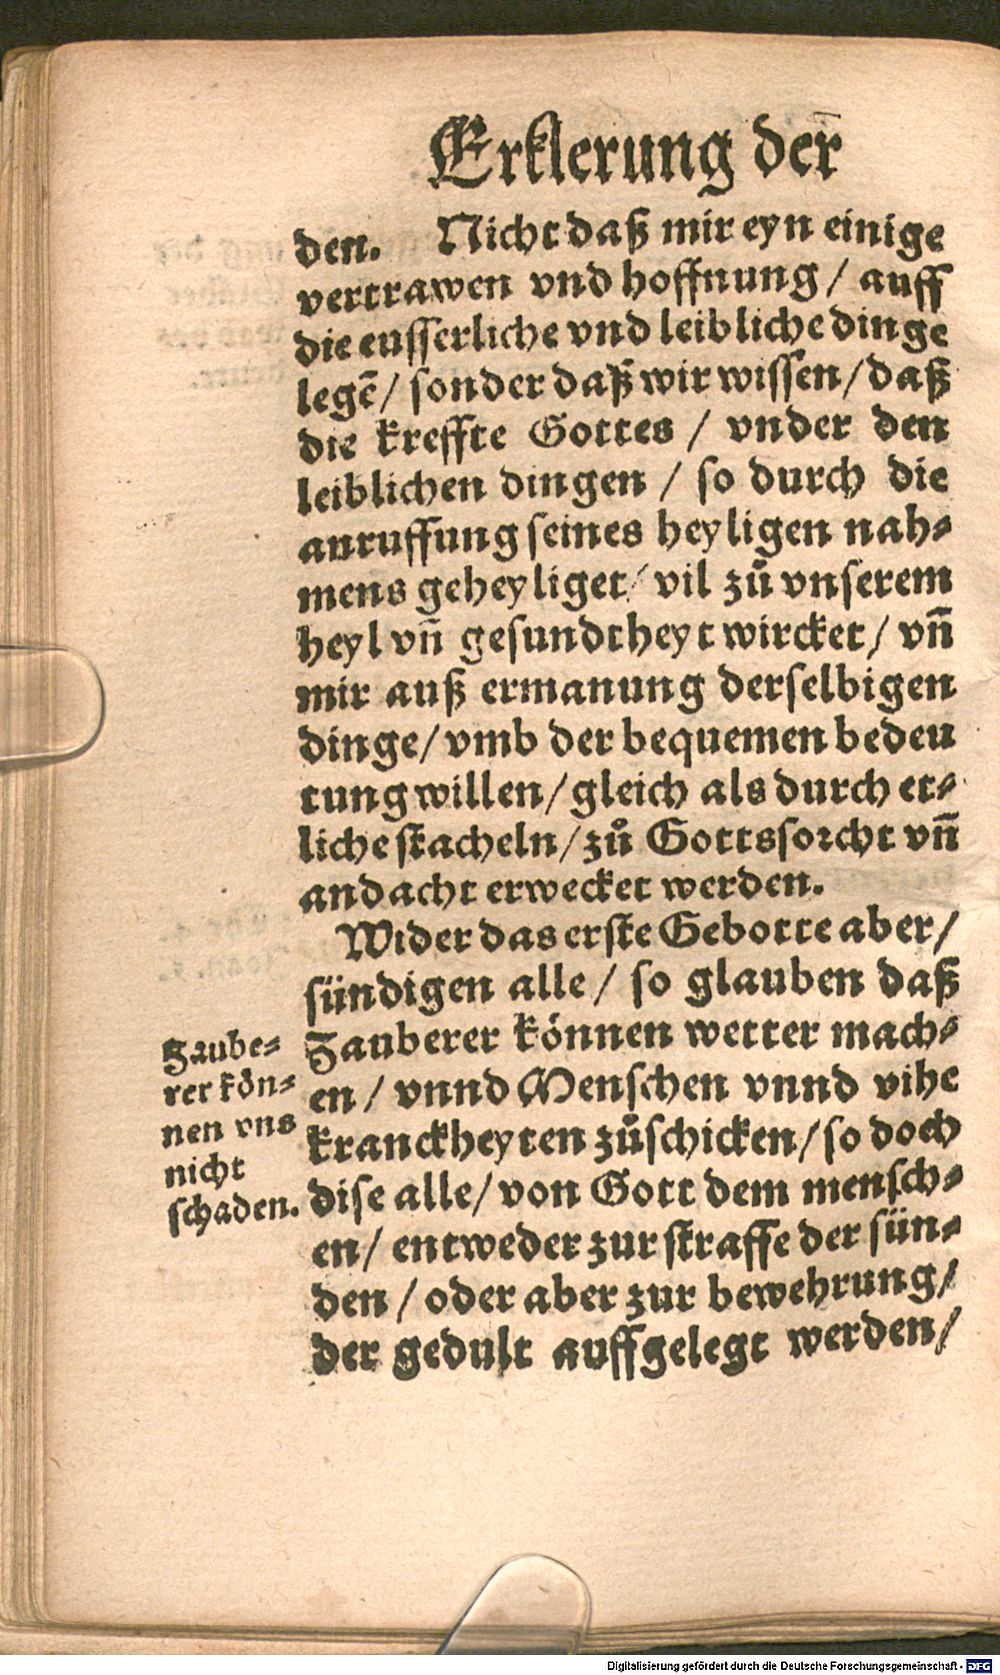 Erklerung der
den. Nicht daß mir eyn einige
vertrawen vnd hoffnung / auff
die eusserliche vnd leibliche dinge
legē / sonder daß wir wissen / daß
die kreffte Gottes / vnder den
leiblichen dingen / so durch die
anruffung seines heyligen nah⸗
mens geheyliget / vil zů vnserem
heyl vn̄ gesundtheyt wircket / vn̄
mir auß ermanung derselbigen
dinge / vmb der bequemen bedeu
tung willen / gleich als durch et⸗
liche stacheln / zů Gottsforcht vn̄
andacht erwecket werden.
Wider das erste Gebotte aber /
sündigen alle / so glauben daß
Zauberer können wetter mach⸗
en / vnnd Menschen vnnd vihe
kranckheyten zůschicken / so doch
dise alle / von Gott dem mensch⸗
en / entweder zur straffe der sün⸗
den / oder aber zur bewehrung /
der gedult auffgelegt werden /
Zaube⸗
rer kön⸗
nen vns
nicht
schaden.
Digitalisierung gefördert durch die Deutsche Forschungsgemeinschaft - DFG